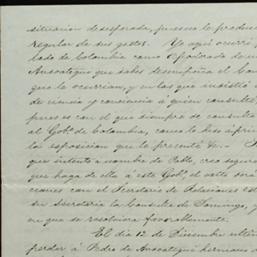 situacion desesperada, pues no le produce
regular de sus gastos. Yo aqui ocurro p
hado de Colombia como apoderado de
Ansoategui que sabe desempeña el Con
que le ocurrian, y en las que insistió
de ciencia y conciencia á quien consult
pero es con el que siempre de consulta
al Gobº de Colombia, como lo hizo
la esposicion que le presenté
que intento a nombre de Pablo, creo segur
que haga de ella á este Gobº el
ciones con el Secretario de Relaciones est
su Secretaria la Consulta de Domingo, y
en que se resolviera favorablemente.
El dia 12 de Diciembre
perder á Pedro de Ansoategui hermano